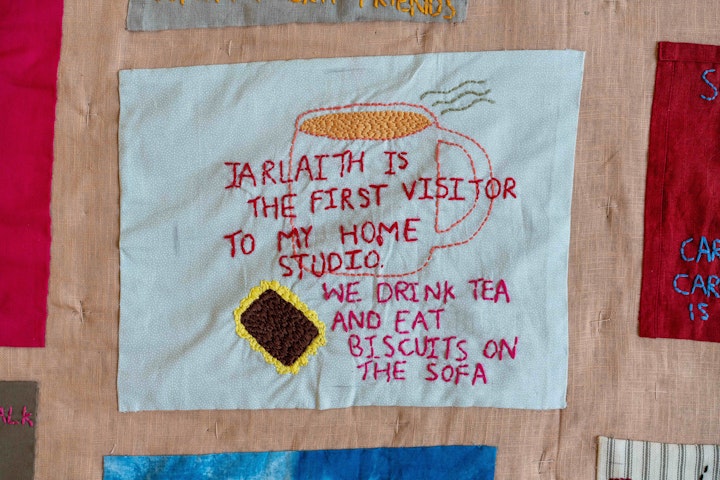 FRIENDS
JARLAITH IS
THE FIRST VISITOR
TO MY HOME
STUDIO.
WE DRINK TEA
AND EAT
BISCUITS ON
THE SOFA
CAR
CAR
IS